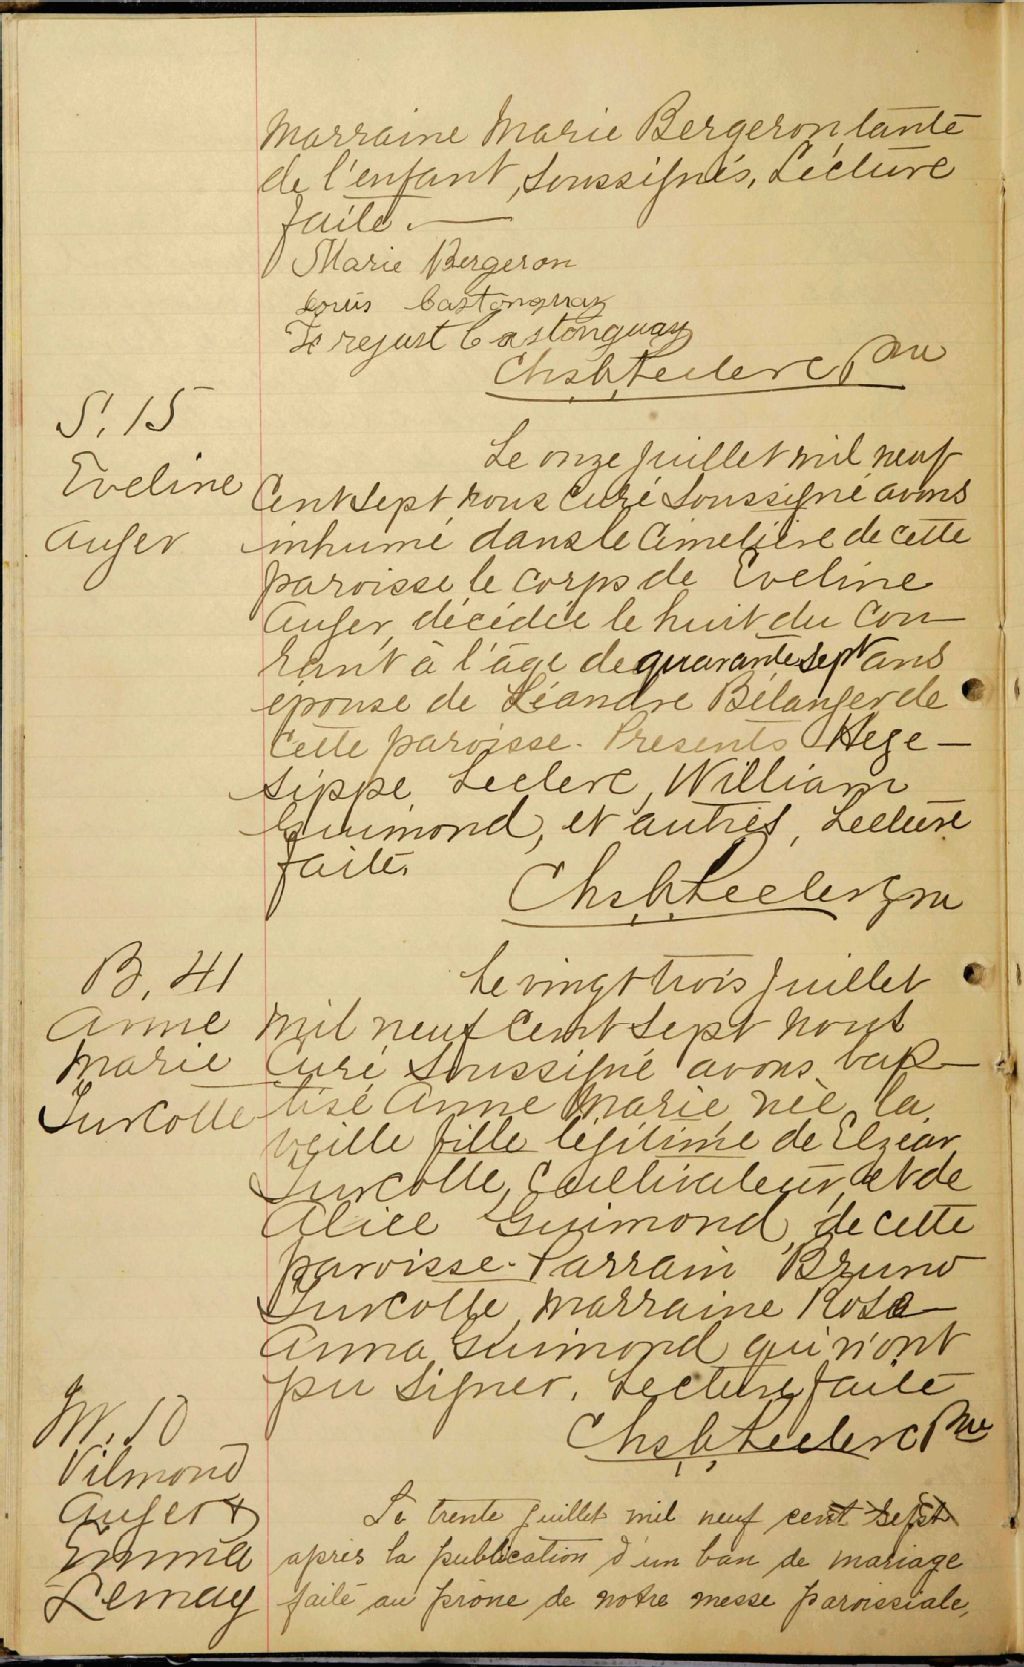 Marraine Marie Bergeron, tante
de l'enfant, soussignés. Lecture
faite.
Marie Bergeron
Louis Castonguay
Frejust Castonguay
Leclerc Ptre
S. 15
Eveline
Auger
Le onze Juillet mil neuf
Cent sept nous Curé soussigné avons
inhumé dans le Cimetière de cette
paroisse le corps de Eveline
Auger, décédée le huit du Cou-
rant à l'âge de quarante sept ans
épouse de Léandre Bélanger de
cette paroisse. Présents Hege-
sippe Leclerc, William
Guimond, et autres, Lecture
faite.
Leclerc Ptre
B. 41
Anne
Marie
Turcotte
Le vingt trois Juillet
mil neuf Cent sept nous
Curé soussigné avons bap-
tisé Anne Marie née la
veille fille légitime de Elzéar
Turcotte, Cultivateur, et de
Alice Guimond, de cette
paroisse. Parrain Bruno
Turcotte, marraine Rose-
Anna Guimond qui n'ont
pu signer. Lecture faite
Leclerc Ptre
M. 10
Vilmond
Auger &
Emma
Lemay
Le trente juillet mil neuf cent sept
après la publication d'un ban de mariage
faite au prône de notre messe paroissiale,